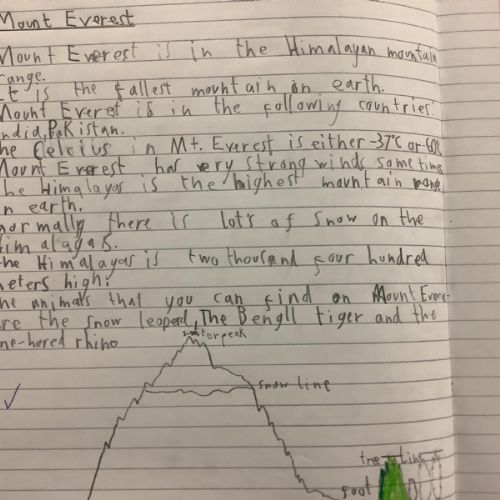 Mount Everest
Mount Everest is in the Himalayan mountain
range.
It is the tallest mountain on earth.
Mount Everet is in the following countries:
India, Pakistan.
The Celcius in Mt. Everest is either -37°C or -60°C
Mount Everest has very strong winds sometimes
The Himalayas is the highest mountain range
on earth.
normally there is lots of snow on the
Himalayas.
The Himalayas is two thousand four hundred
meters high?
The animals that you can find on Mount Everest
are the snow leoperd, The Bengll tiger and the
one-hored rhino
top or peak
snow line
tree line
foot